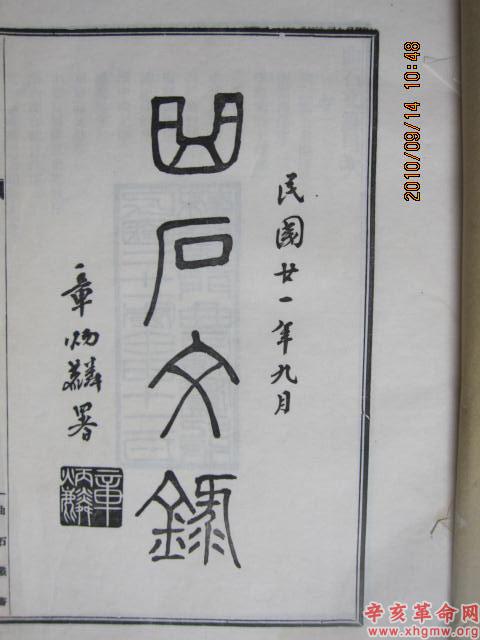 民國廿一年九月
曲石文錄
章炳麟署
章炳麟
曲石叢書
2010/09/14 10:48
辛亥革命网
www.xhgmw.org